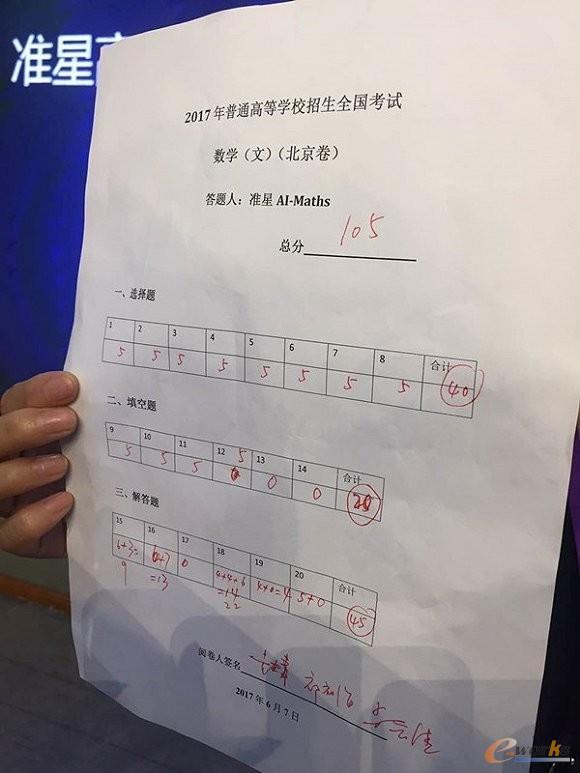 准星高
2017年普通高等学校招生全国考试
数学（文）（北京卷）
答题人：准星 AI-Maths
总分 105
一、选择题
1 2 3 4 5 6 7 8 合计
5 5 5 5 5 5 5 5 40
二、填空题
9 10 11 12 13 14 合计
5 5 5 5 0 0 20
三、解答题
15 16 17 18 19 20 合计
6+3= 6+7 0 4+4+6 4+0=4 5+0 45
9 =13 =14
22
阅卷人签名
2017年6月7日
e-works